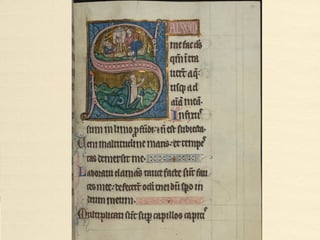 SALVVM
me fac ds
qm intra
uert aq:
usq ad
aīā meā.
Infixus
sum in limo pfdi: et n est substātia.
Veni in altitudinem maris: et tempes
tas demersit me.
Laboraui clamans rauce facte sūt fau
ces mee: defecert oculi mei dum spo in
deum meum.
Multiplicati sūt sup capillos capitis